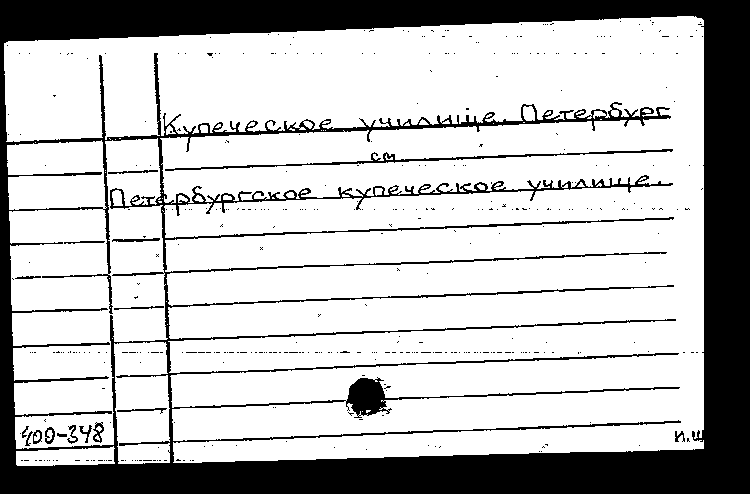 Купеческое училище. Петербург
см
Петербургское купеческое училище.
400-348
И.Ш